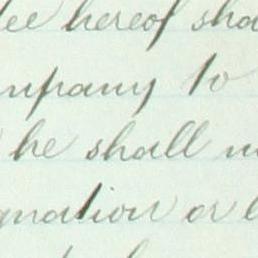 hereof sha
mpany to
he shall
gnation or